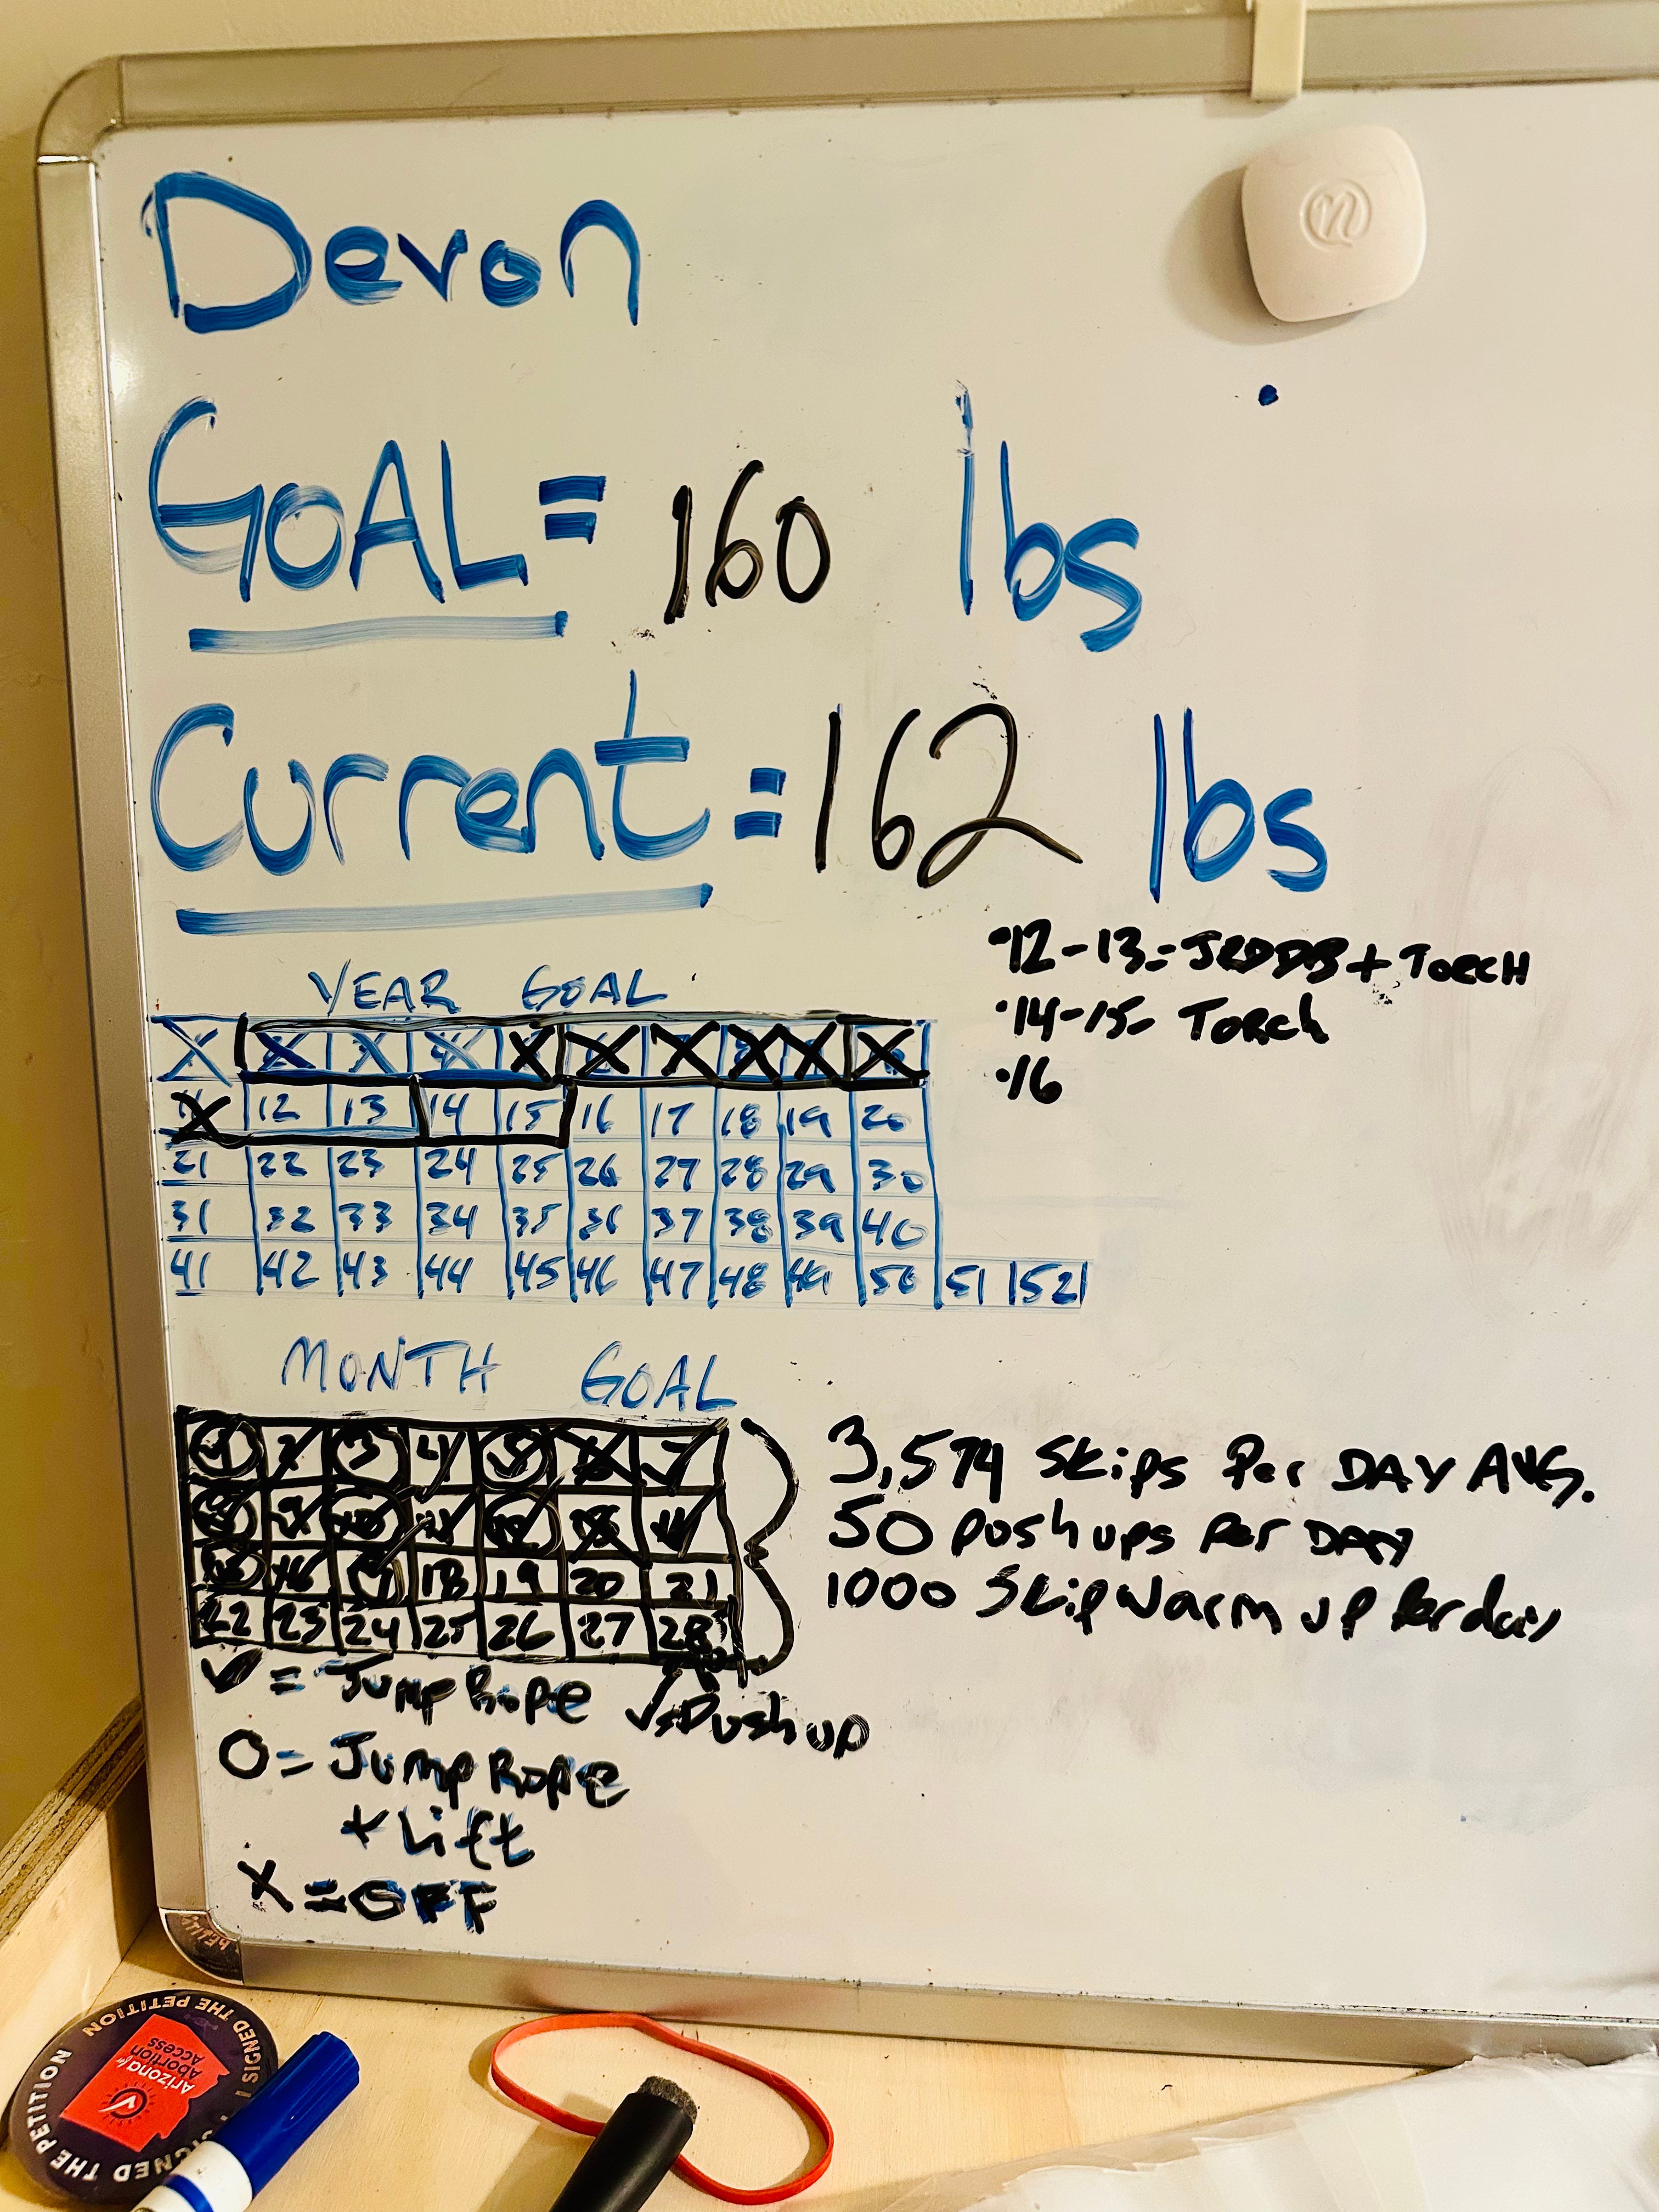 n
Devon
GOAL = 160 lbs
Current = 162 lbs
·12-13= JRDDB + TORCH
·14-15- TORCH
·16
YEAR GOAL
X X X X X X X X X X
X 12 13 14 15 16 17 18 19 20
21 22 23 24 25 26 27 28 29 30
31 32 33 34 35 36 37 38 39 40
41 42 43 44 45 46 47 48 49 50 51 52
MONTH GOAL
1 2 3 4 5 6 7
8 9 10 11 12 13 14
15 16 17 18 19 20 21
22 23 24 25 26 27 28
3,574 Skips Per DAY AVG.
50 push ups Per DAY
1000 Skip Warm up Per day
✓ = Jump Rope ✓=Push up
O = Jump Rope
+ Lift
X = OFF
I SIGNED THE PETITION
I SIGNED THE PETITION
Arizona for
Abortion
Access